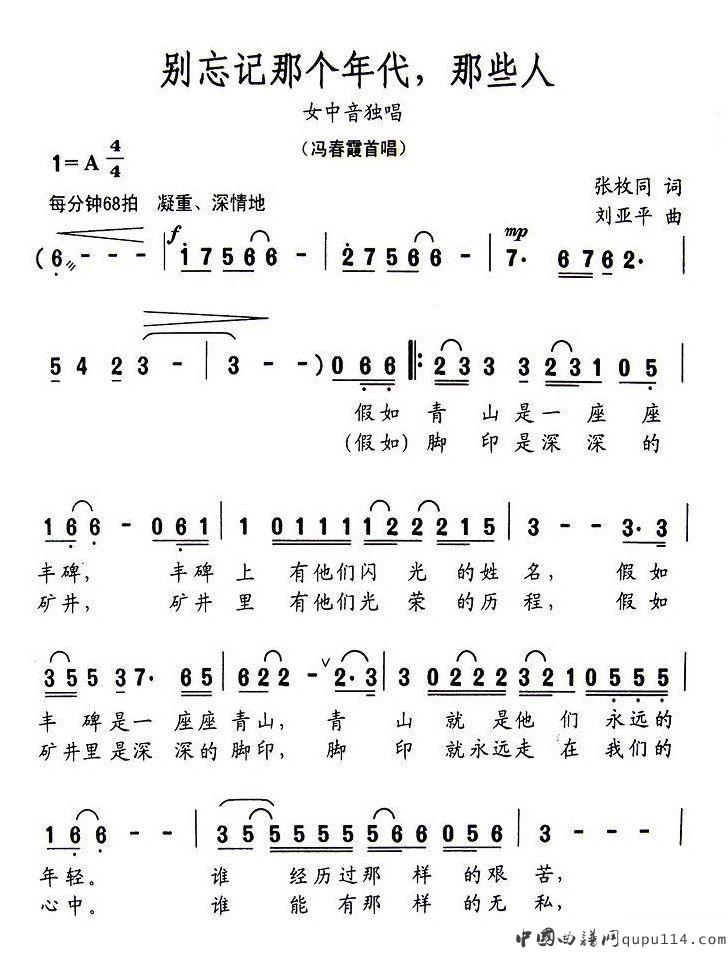 别忘记那个年代，那些人
女中音独唱
（冯春霞首唱）
1=A 4/4
张枚同 词
每分钟68拍 凝重、深情地
刘亚平 曲
f mp
(6 - - - | 1 7 5 6 6 | 2 7 5 6 6 | 7· 6 7 6 2· |
5 4 2 3 - | 3 - - ) 0 6 6 |: 2 3 3 3 2 3 1 0 5 |
假如 青 山 是 一 座 座
(假如) 脚 印 是 深 深 的
1 6 6 - 0 6 1 | 1 0 1 1 1 1 2 2 2 1 5 | 3 - - 3· 3 |
丰 碑， 丰 碑 上 有他们闪 光 的姓 名， 假 如
矿 井， 矿 井 里 有他们光 荣 的历 程， 假 如
3 5 5 3 7· 6 5 | 6 2 2 - 2· 3 | 3 0 2 2 2 3 2 1 0 5 5 5 |
丰 碑是一 座座青山， 青 山 就 是他 们 永远的
矿井里是深 深的脚印， 脚 印 就永远走 在 我们的
1 6 6 - - | 3 5 5 5 5 5 5 6 6 0 5 6 | 3 - - - |
年轻。 谁 经历过那 样 的艰 苦，
心中。 谁 能 有那 样 的无 私，
中国曲谱网qupu114.com